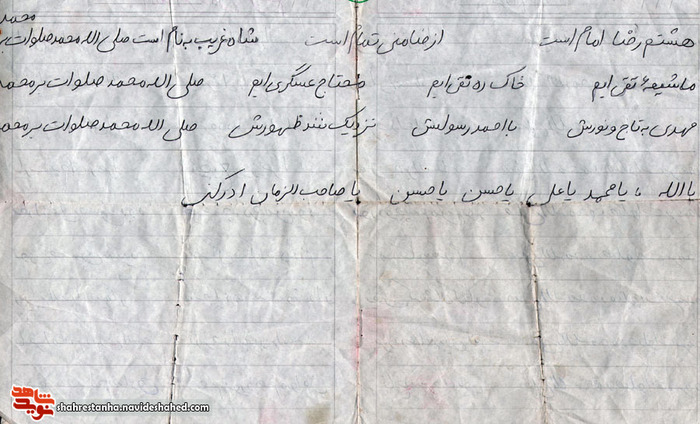 محمد
هشتم رضا امام است از ضامنی تمام است شاه غریب به نام است صلی الله محمد صلوات بر
ما شیعهٔ تقی ایم خاک ره نقی ایم محتاج عسگری ایم صلی الله محمد صلوات بر محمد
مهدی به تاج و نورش با احمد رسولش نزدیک شد ظهورش صلی الله محمد صلوات بر محمد
یا الله ، یا محمد یا علی یا حسن یا حسین یا صاحب الزمان ادرکنی
نوید شاهد
shahrestanha.navideshahed.com